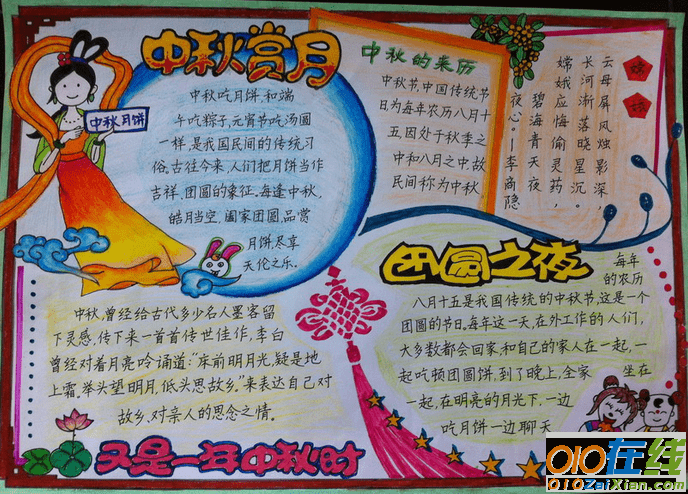 中秋赏月
中秋月饼
中秋吃月饼,和端
午吃粽子,元宵节吃汤圆
一样,是我国民间的传统习
俗。古往今来,人们把月饼当作
吉祥、团圆的象征,每逢中秋,
皓月当空,阖家团圆,品赏
月饼尽享
天伦之乐。
中秋的来历
中秋节,中国传统节
日为每年农历八月十
五因处于秋季之
中和八月之中,故
民间称为中秋
嫦娥
云母屏风烛影深,
长河渐落晓星沉。
嫦娥应悔偷灵药,
碧海青天夜
夜心。—李商隐
中秋,曾经给古代多少名人墨客留
下灵感,传下来一首首传世佳作,李白
曾经对着月亮吟诵道:“床前明月光,疑是地
上霜,举头望明月,低头思故乡。”来表达自己对
故乡、对亲人的思念之情。
团圆之夜
每年
的农历
八月十五是我国传统的中秋节,这是一个
团圆的节日,每年这一天,在外工作的人们,
大多数都会回家,和自己的家人在一起,一
起吃顿团圆饼,到了晚上,全家坐在
一起,在明亮的月光下,一边
吃月饼一边聊天
又是一年中秋时
010在线
010ZaiXian.com